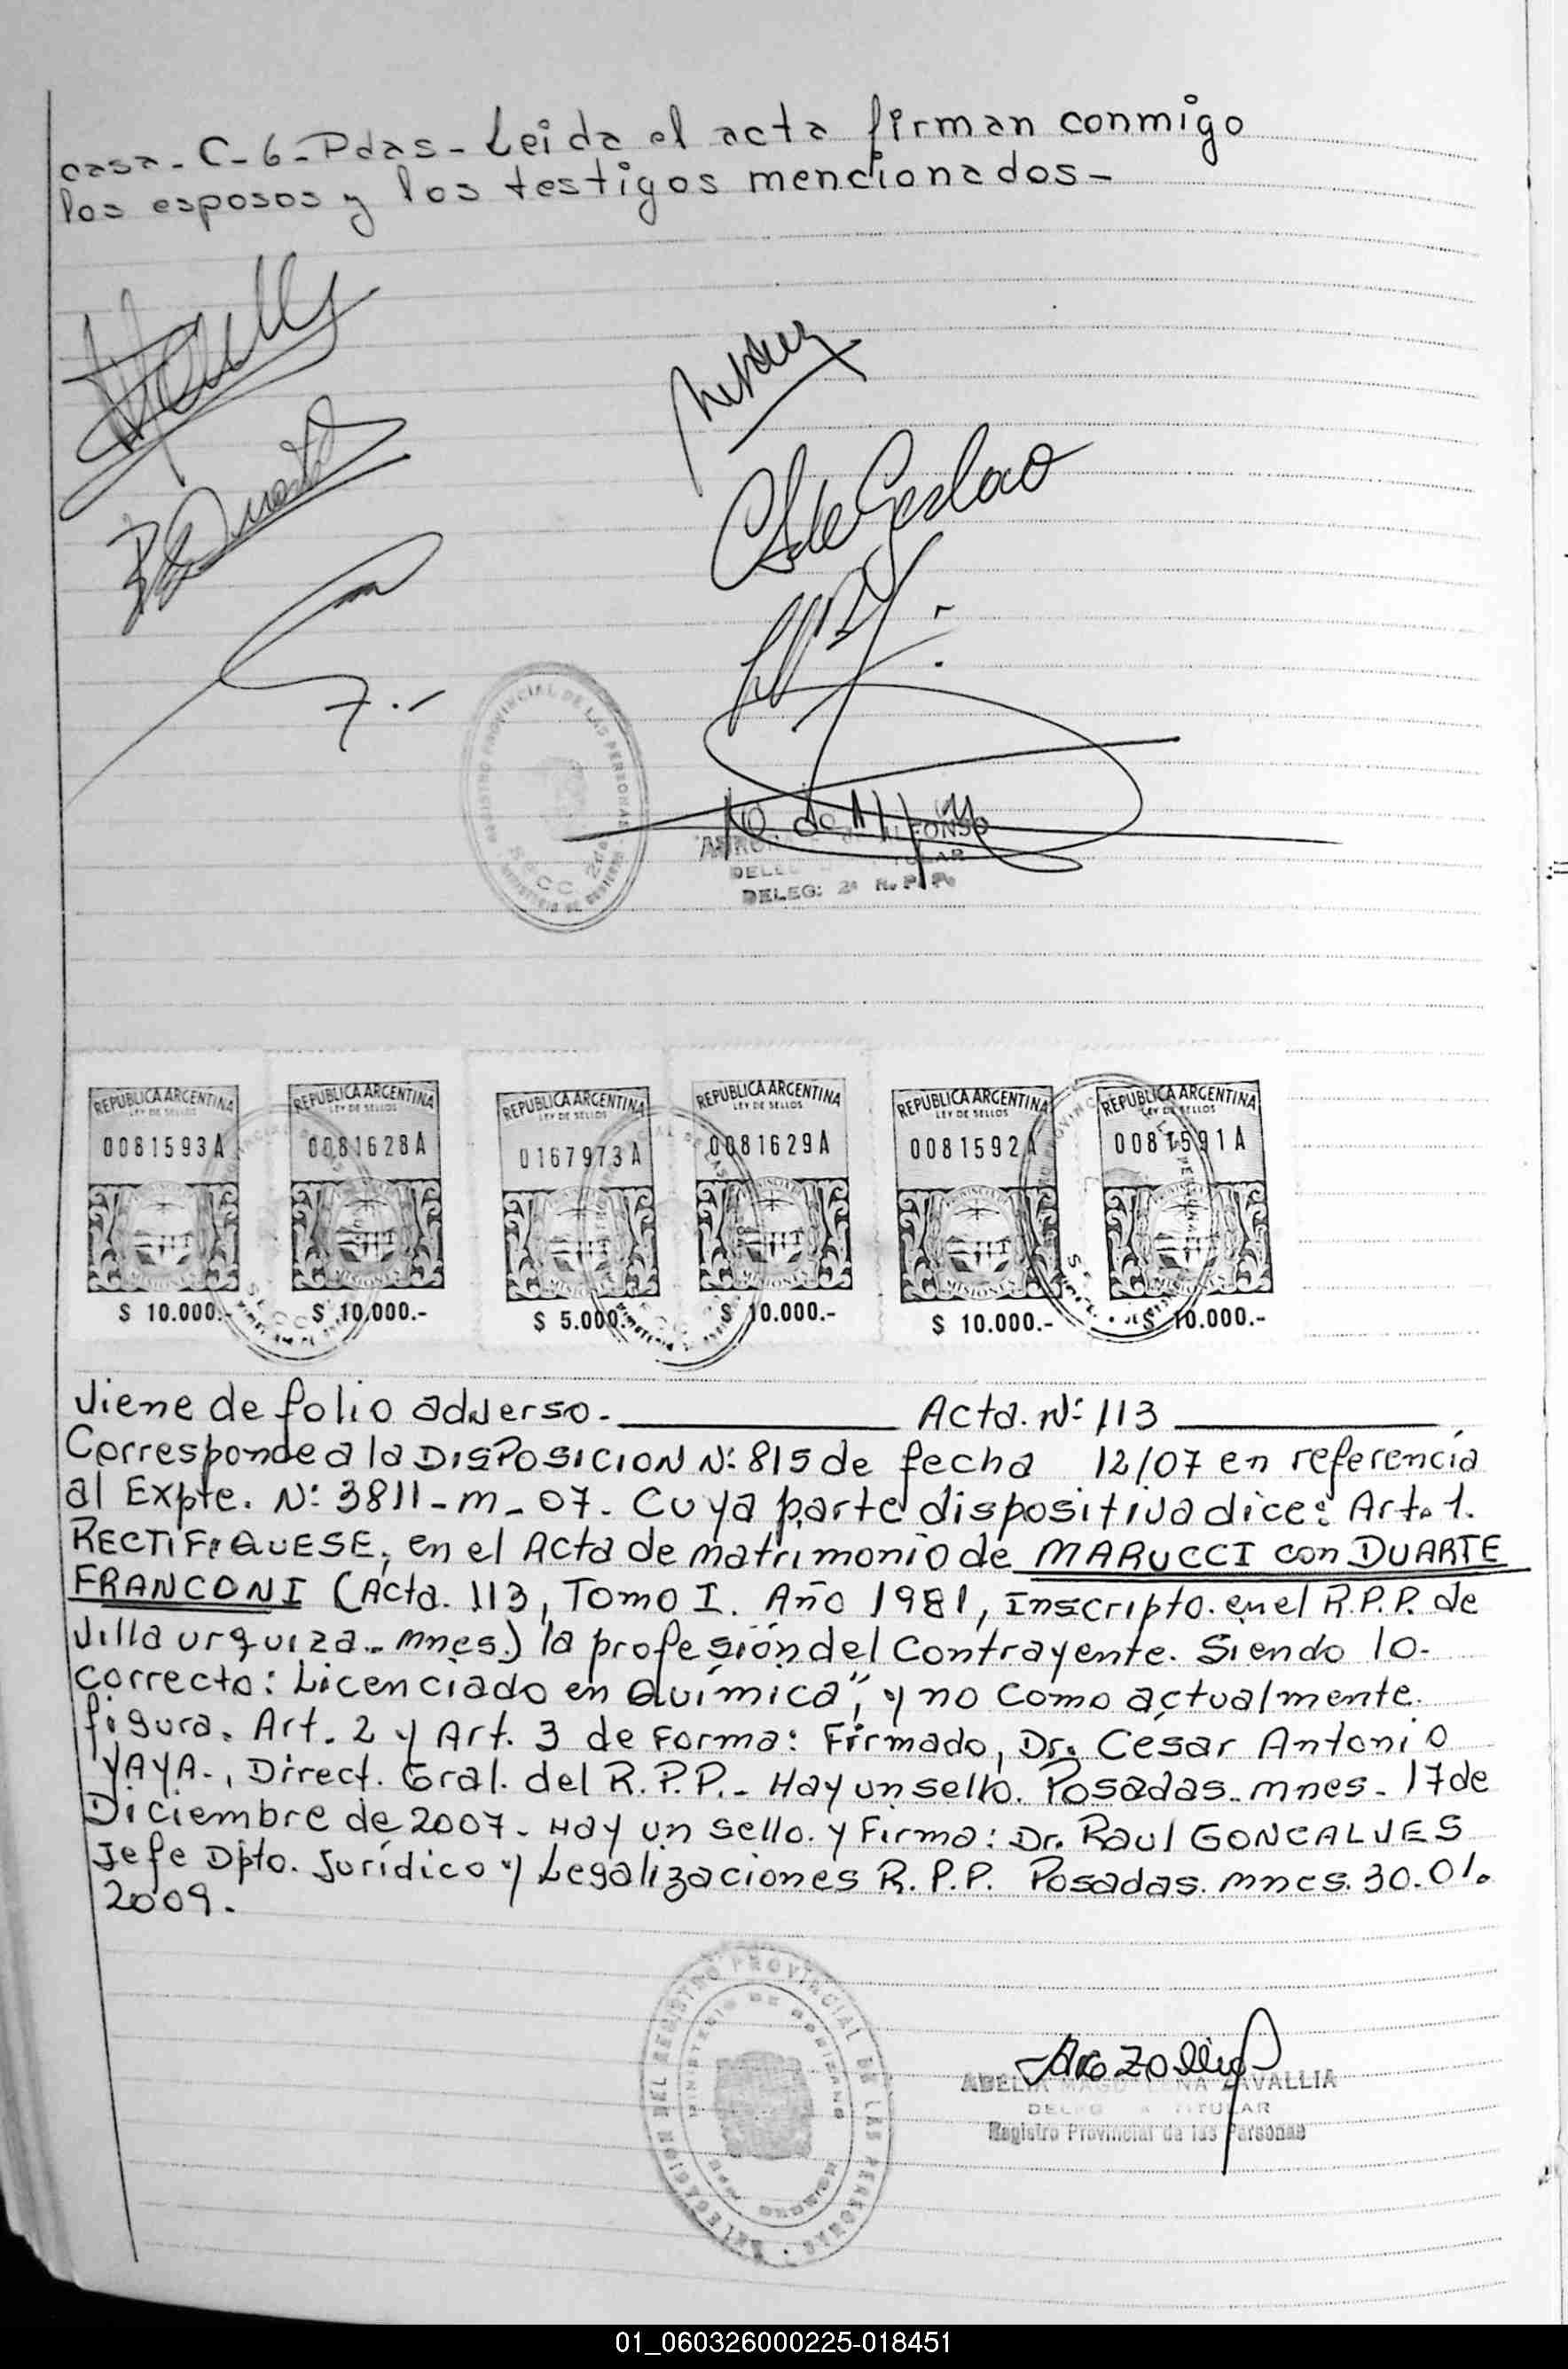 casa - C - 6 - Pdas - Leida el acta firman conmigo
los esposos y los testigos mencionados -
REGISTRO PROVINCIAL DE LAS PERSONAS
SECC. 2da
DELEG: 2ª R. P. P.
REPUBLICA ARGENTINA REPUBLICA ARGENTINA REPUBLICA ARGENTINA REPUBLICA ARGENTINA REPUBLICA ARGENTINA REPUBLICA ARGENTINA
LEY DE SELLOS LEY DE SELLOS LEY DE SELLOS LEY DE SELLOS LEY DE SELLOS LEY DE SELLOS
0081593A 0081628A 0167973A 0081629A 0081592A 0081591A
$ 10.000.- $ 10.000.- $ 5.000.- $ 10.000.- $ 10.000.- $ 10.000.-
Viene de folio adverso. Acta. Nº 113
Corresponde a la DISPOSICION Nº 815 de fecha 12/07 en referencia
al Expte. Nº 3811-M-07. Cuya parte dispositiva dice: Art. 1.
RECTIFIQUESE, en el Acta de matrimonio de MARUCCI con DUARTE
FRANCONI (Acta. 113, Tomo I. Año 1981, Inscripto. en el R.P.P. de
Villa Urquiza.. mnes.) la profesión del Contrayente. Siendo lo
correcto: Licenciado en Química", y no como actualmente.
figura. Art. 2 y Art. 3 de forma: Firmado, Dr. César Antonio
YAYA-, Direct. Gral. del R.P.P.- Hay un sello. Posadas.. mnes - 17 de
Diciembre de 2007 - Hay un sello. y Firma: Dr. Raul GONCALVES
Jefe Dpto. Jurídico y Legalizaciones R.P.P. Posadas. mnes. 30.01.
2009.
DELEGACION DEL REGISTRO PROVINCIAL DE LAS PERSONAS
MINISTERIO DE GOBIERNO
ADELIA MAGDALENA ZAVALLIA
DELEGADA TITULAR
Registro Provincial de las Personas
01_060326000225-018451